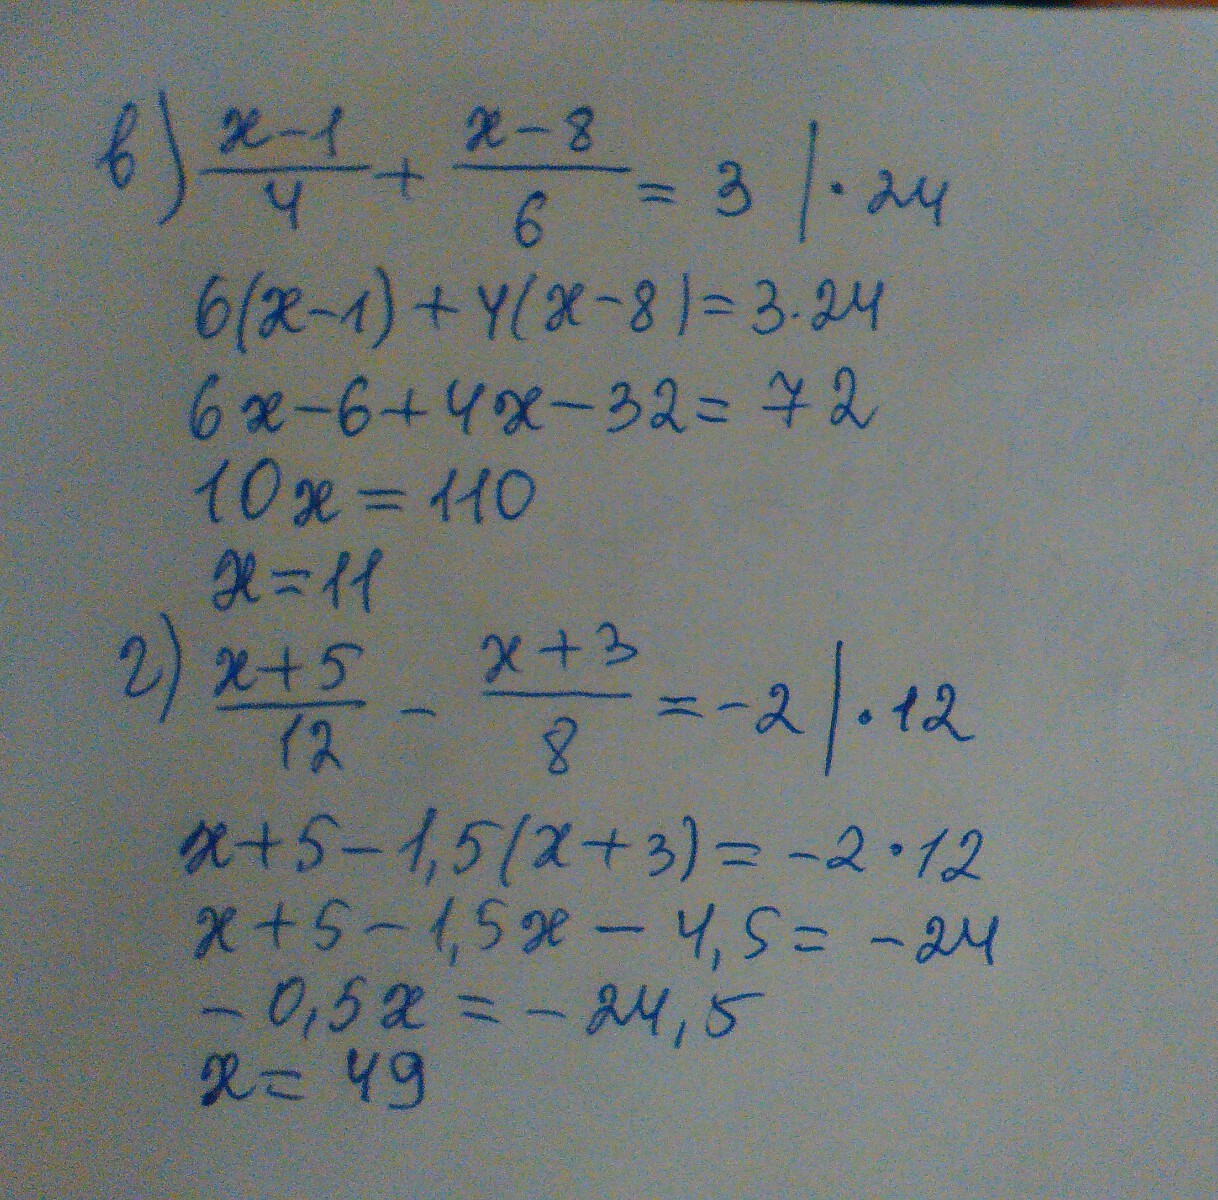 в) (x-1)/4 + (x-8)/6 = 3 | · 24
6(x-1)+4(x-8)=3·24
6x-6+4x-32=72
10x=110
x=11
г) (x+5)/12 - (x+3)/8 = -2 | · 12
x+5-1,5(x+3)=-2·12
x+5-1,5x-4,5=-24
-0,5x=-24,5
x=49